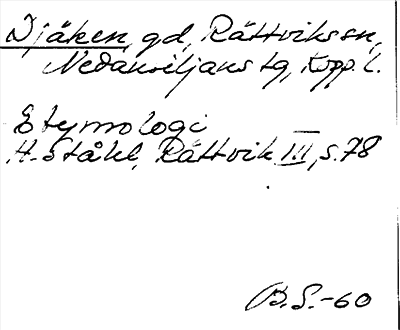 Djäken, gd, Rättviks sn,
Nedansiljans tg, Kopp. l.
Etymologi
H. Ståhl, Rättvik III, s. 78
B.S.-60